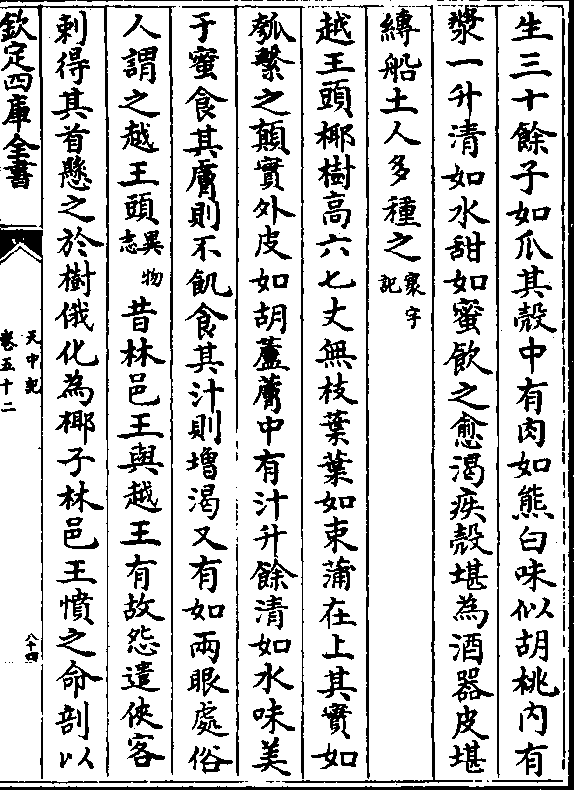 生三十餘子如瓜其殼中有肉如熊白味似胡桃内有
漿一升清如水甜如蜜飲之愈渴疾殼堪為酒器皮堪
縳船土人多種之寰字記
越王頭椰樹高六七丈無枝葉葉如束蒲在上其實如
瓠繫之顛實外皮如胡蘆膚中有汁升餘清如水味美
于蜜食其膚則不飢食其汁則増渴又有如兩眼處俗
人謂之越王頭異物志昔林邑王與越王有故怨遣俠客
刺得其首懸之於樹俄化為椰子林邑王憤之命剖以
欽定四庫全書
天中記
卷五十二
八十四